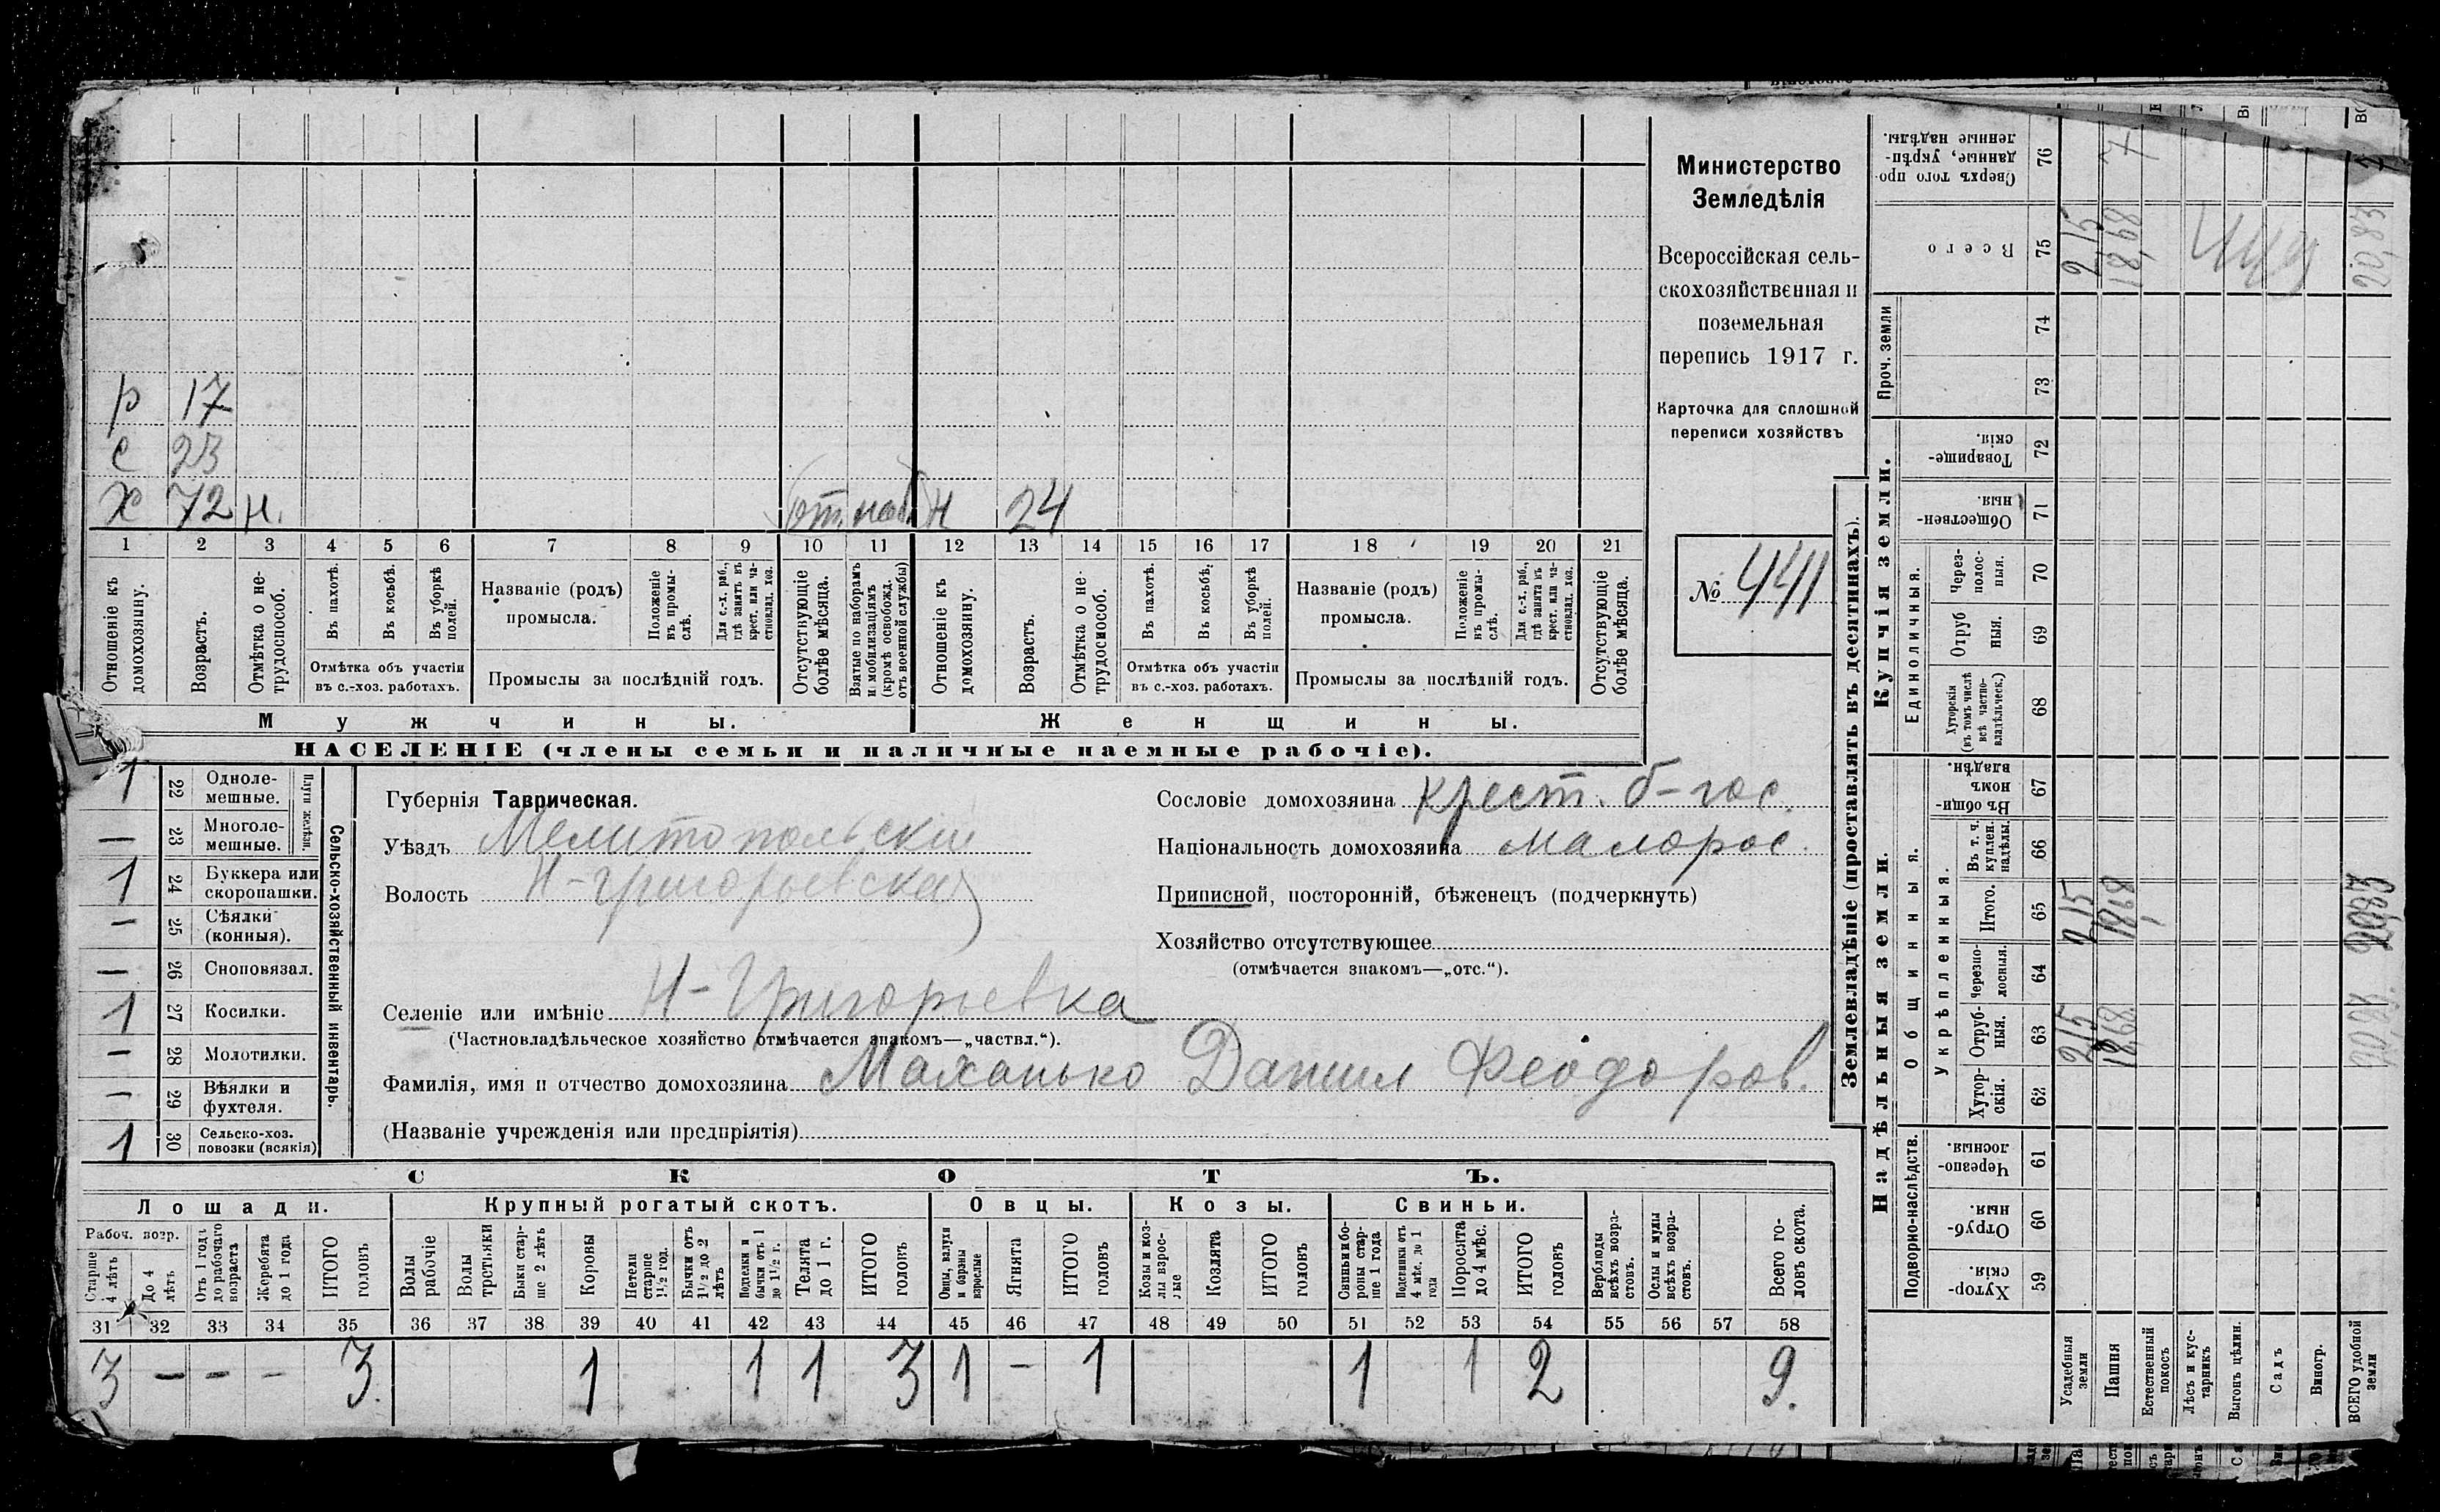 р 17
с 23
х 72 н. (от. наб) н 24
1 2 3 4 5 6 7 8 9 10 11 12 13 14 15 16 17 18 19 20 21
Отношеніе къ домохозяину.
Возрастъ.
Отмѣтка о не-трудоспособ.
Въ пахотѣ.
Въ косьбѣ.
Въ уборкѣ полей.
Отмѣтка объ участіи въ с.-хоз. работахъ.
Названіе (родъ) промысла.
Положеніе въ промы-слѣ.
Для с.-х. раб., гдѣ занятъ въ крест. или ча-стновлад. хоз.
Промыслы за послѣдній годъ.
Отсутствующіе болѣе мѣсяца.
Взятые по наборамъ и мобилизаціямъ (кромѣ освобожд. отъ военной службы)
Отношеніе къ домохозяину.
Возрастъ.
Отмѣтка о не-трудоспособ.
Въ пахотѣ.
Въ косьбѣ.
Въ уборкѣ полей.
Отмѣтка объ участіи въ с.-хоз. работахъ.
Названіе (родъ) промысла.
Положеніе въ промы-слѣ.
Для с.-х. раб., гдѣ занята въ крест. или ча-стновлад. хоз.
Промыслы за послѣдній годъ.
Отсутствующіе болѣе мѣсяца.
Мужчины. Женщины.
НАСЕЛЕНІЕ (члены семьи и наличные наемные рабочіе).
Министерство
Земледѣлія
Всероссійская сель-
скохозяйственная и
поземельная
перепись 1917 г.
Карточка для сплошной
переписи хозяйствъ
№ 441
1 22 Одноле-мешные.
— 23 Многоле-мешные.
Плуги желѣзн.
1 24 Буккера или скоропашки.
— 25 Сѣялки (конныя).
— 26 Сноповязал.
1 27 Косилки.
— 28 Молотилки.
— 29 Вѣялки и фухтеля.
1 30 Сельско-хоз. повозки (всякія)
Сельско-хозяйственный инвентарь.
Губернія Таврическая.
Уѣздъ Мелитопольскій
Волость Н-Григорьевская
Селеніе или имѣніе Н-Григорьевка
(Частновладѣльческое хозяйство отмѣчается знакомъ—„частвл.“).
Фамилія, имя и отчество домохозяина Маханько Данил Феодоров.
(Названіе учрежденія или предпріятія)
Сословіе домохозяина крест. б-гос.
Національность домохозяина малорос.
Приписной, посторонній, бѣженец (подчеркнуть)
Хозяйство отсутствующее
(отмѣчается знакомъ—„отс.“).
СКОТЪ.
Лошади. Крупный рогатый скотъ. Овцы. Козы. Свиньи.
Рабоч. возр.
Старше 4 лѣтъ
До 4 лѣтъ
Отъ 1 года до рабочаго возраста
Жеребята до 1 года
ИТОГО головъ
Волы рабочіе
Волы третьяки
Быки стар-ше 2 лѣтъ
Коровы
Нетели старше 1½ год.
Бычки отъ 1½ до 2 лѣтъ
Подтелки и бычки отъ 1 до 1½ г.
Телята до 1 г.
ИТОГО головъ
Овцы, валухи и бараны взрослые
Ягнята
ИТОГО головъ
Козы и коз-лы взрос-лые
Козлята
ИТОГО головъ
Свиньи и бо-ровы стар-ше 1 года
Подсвинки отъ 4 мѣс. до 1 года
Поросята до 4 мѣс.
ИТОГО головъ
Верблюды всѣхъ возра-стовъ.
Ослы и мулы всѣхъ возра-стовъ.
Всего го-ловъ скота.
31 32 33 34 35 36 37 38 39 40 41 42 43 44 45 46 47 48 49 50 51 52 53 54 55 56 57 58
3 — — — 3. 1 1 1 3 1 — 1 1 1 2 9.
Землевладѣніе (проставлять въ десятинахъ).
Надѣльныя земли. Купчія земли. Проч. земли
Подворно-наслѣдств.
Общинныя.
Укрѣпленныя.
Единоличныя.
Хутор-скія. 59
Отруб-ныя. 60
Черезпо-лосныя. 61
Хутор-скія. 62
Отруб-ныя. 63 2,15 18,68 20,83
Черезпо-лосныя. 64
Итого. 65 2,15 18,68 20,83
Въ т. ч. куплен. надѣлы. 66
Въ общин-номъ владѣн. 67
Хуторскія (въ томъ числѣ всѣ частно-владѣльческ.) 68
Отруб ныя. 69
Через-полос-ныя. 70
Обществен-ныя. 71
Товарище-скія. 72
73
74
Всего 75 2,15 18,68 20,83
Сверхъ того про-данные, укрѣп-ленные надѣлы. 76 7
Усадебныя земли
Пашня
Естественный покосъ
Лѣсъ и кус-тарникъ
Выгонъ цѣлин.
Садъ
Виногр.
ВСЕГО удобной земли